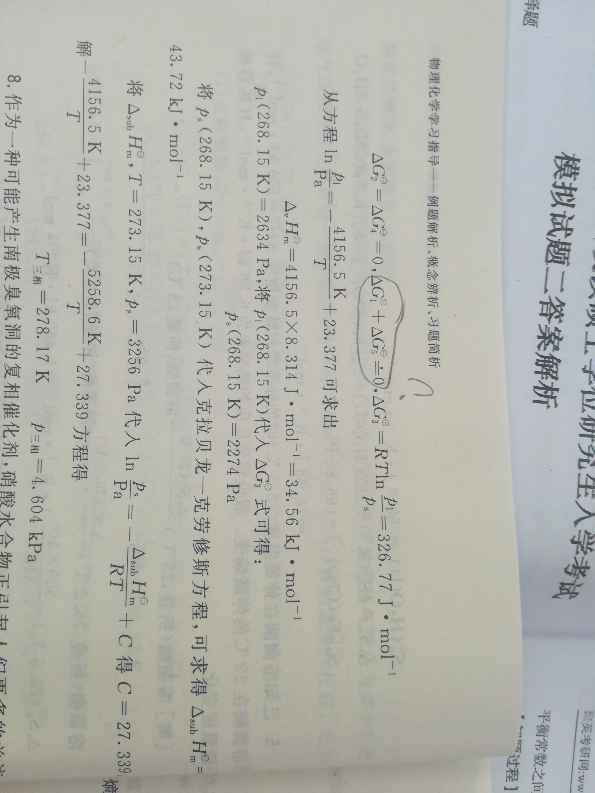 物理化学学习指导——例题解析、概念辨析、习题简析
ΔG₂^⊖=ΔG₄^⊖=0,ΔG₁^⊖+ΔG₅^⊖≐0,ΔG₃^⊖=RTln p₁/pₛ=326.77 J·mol⁻¹
从方程 ln p₁/Pa=-4156.5 K/T+23.377 可求出
ΔᵥHₘ^⊖=4156.5×8.314 J·mol⁻¹=34.56 kJ·mol⁻¹
p₁(268.15 K)=2634 Pa,将 p₁(268.15 K)代入 ΔG₃^⊖ 式可得:
pₛ(268.15 K)=2274 Pa
将 pₛ(268.15 K),pₛ(273.15 K) 代入克拉贝龙—克劳修斯方程,可求得 ΔsubHₘ^⊖=
43.72 kJ·mol⁻¹
将 ΔsubHₘ^⊖,T=273.15 K,pₛ=3256 Pa 代入 ln pₛ/Pa=-ΔsubHₘ^⊖/RT+C 得 C=27.339
解-4156.5 K/T+23.377=-5258.6 K/T+27.339 方程得
T三相=278.17 K p三相=4.604 kPa
8. 作为一种可能产生南极臭氧洞的复相催化剂,硝酸水合物正引起人们
学位研究生入学考试
模拟试题二答案解析
平衡常数之间
过程】